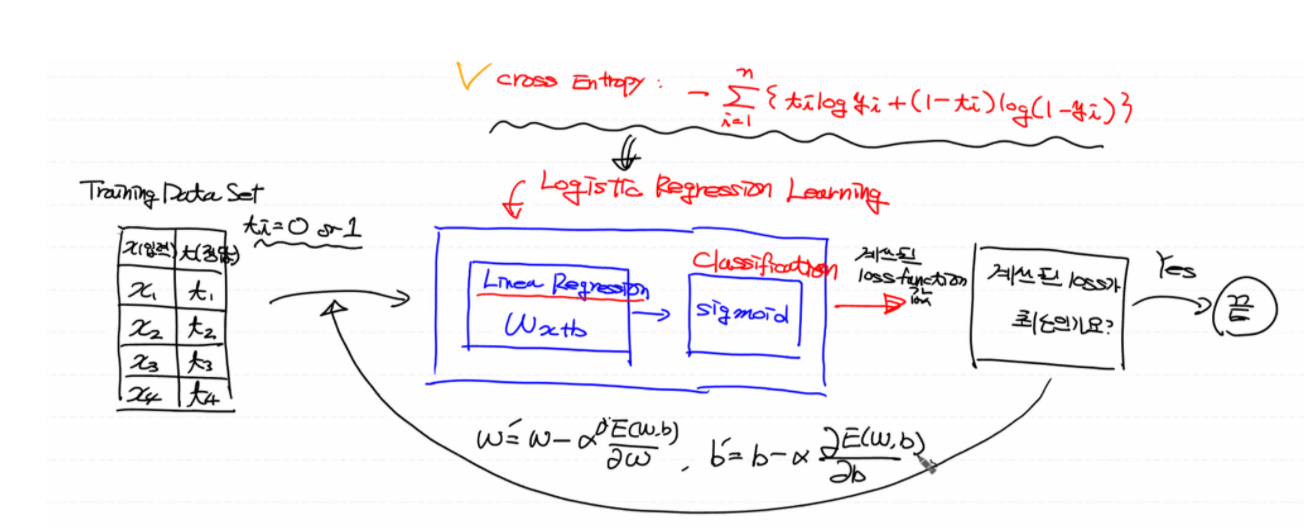 ✓ cross Entropy : - Σ_{i=1}^{n} {ti log yi + (1-ti) log(1-yi)}
Logistic Regression Learning
Training Data Set
ti=0 or 1
x(입력) t(정답)
x₁ t₁
x₂ t₂
x₃ t₃
x₄ t₄
Linear Regression
Wx+b
Classification
sigmoid
계산된
loss function
값
계산된 loss가
최소인가요?
Yes
w′= w - α ∂E(w,b)/∂w , b′= b - α ∂E(w,b)/∂b